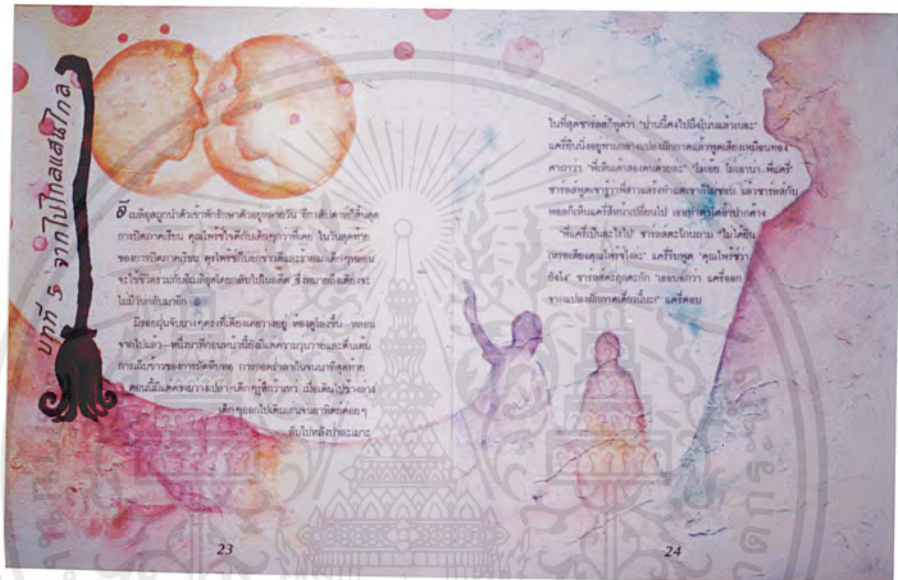 บาทที่ 5 จากไปไกลแสนไกล
อีเมลิอุสถูกนำตัวเข้าพักรักษาตัวอยู่หลายวัน อีกสัปดาห์ก็สิ้นสุด
การปิดภาคเรียน คุณไพรซ์ใจดีกับเด็กๆกว่าที่เคย ในวันสุดท้าย
ของการปิดภาคเรียน คุรุไพรซ์ก็บอกข่าวดีและร้ายแก่เด็กๆหล่อน
จะใช้ชีวิตร่วมกับอีเมลิอุสโดยกลับไปในอดีต ซึ่งหมายถึงเตียงจะ
ไม่มีวันกลับมาอีก
มีรอยฝุ่นจับบางๆตรงที่เตียงเคยวางอยู่ ห้องดูโล่งขึ้น หล่อน
จากไปแล้ว—หนึ่งนาทีก่อนหน้านี้ยังมีแต่ความวุ่นวายและตื่นเต้น
การเก็บข้าวของการยัดหีบห่อ การกอดร่ำลากันจนนาทีสุดท้าย
ตอนนี้มีแต่ความว่างเปล่า เด็กๆรู้สึกว้าเหว่ เมื่อเดินไปข้างล่าง
เด็กๆออกไปเดินเล่นจนอาทิตย์ค่อยๆ
ลับไปหลังป่าละเมาะ
23
ในที่สุดชาร์ลส์ก็พูดว่า "ป่านนี้คงไปถึงโน่นแล้วเนอะ"
แครี่ยืนนิ่งอยู่ท่ามกลางแปลงผักกาดแล้วพูดเสียงเหมือนท่อง
คาถาว่า "พี่เห็นเค้าสองคนด้วยละ" "ไม่เอ๊ย ไม่เอาน่า พี่แครี่"
ชาร์ลส์พูดเขารู้ว่าพี่สาวแสร้งทำแต่เขาก็ไม่ชอบ แล้วชาร์ลส์กับ
พอลก็เห็นแครี่สีหน้าเปลี่ยนไป เธอทำตาโตอ้าปากค้าง
"พี่แครี่เป็นอะไรไป" ชาร์ลส์ตะโกนถาม "ไม่ได้ยิน
เหรอเสียงคุณไพรซ์ไงละ" แครี่รีบพูด "คุณไพรซ์ว่า
ยังไง" ชาร์ลส์ตะกุกตะกัก "เธอบอกว่า แครี่ออก
จากแปลงผักกาดเดี๋ยวนี้นะ" แครี่ตอบ
24